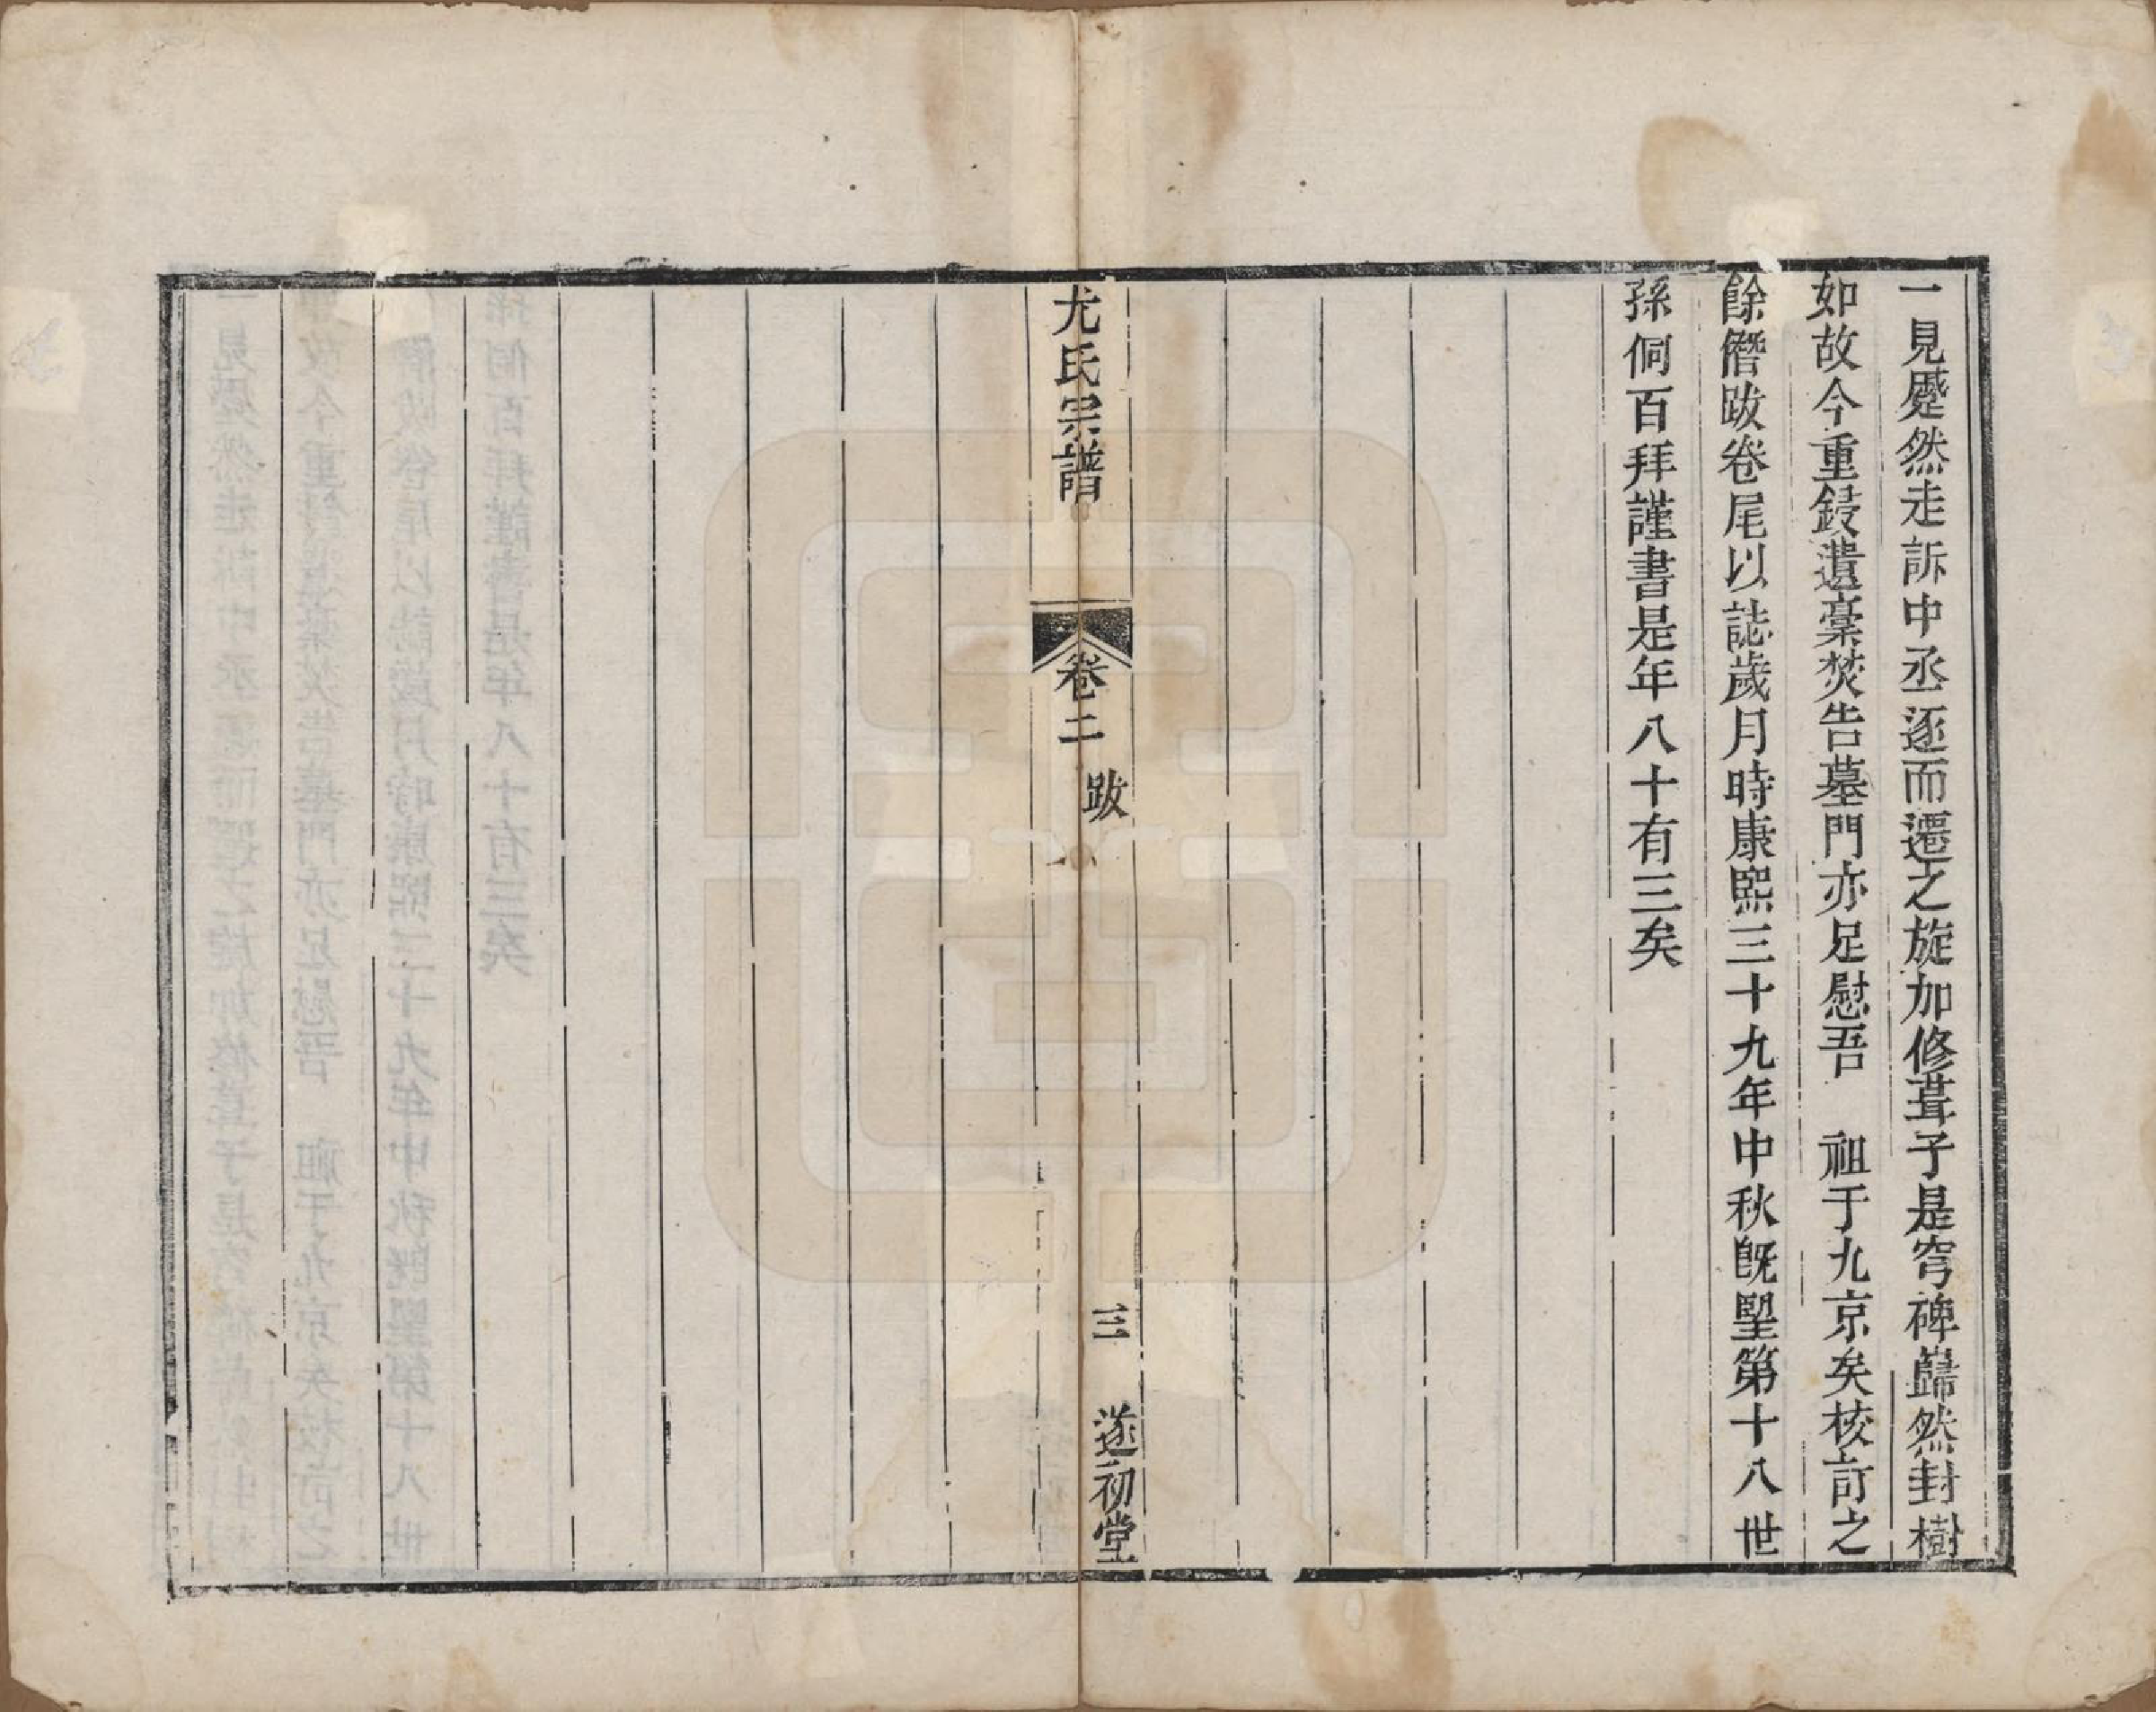 一見蹙然走訴中丞逐而遷之旋加修葺于是穹碑巋然封樹
如故今重鋟遺稾焚告墓門亦足慰吾　祖于九京矣校訂之
餘僭跋卷尾以誌歲月時康熙三十九年中秋旣朢第十八世
孫侗百拜謹書是年八十有三矣
尤氏宗譜　卷二　跋　三　遂初堂